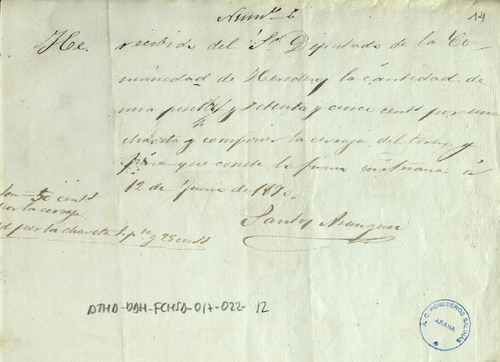 Num.º 6
14
He. recibido del Sr. Diputado de la Co-
munidad de Herederos la cantidad de
una peseta y setenta y cinco cents por una
chaveta y componer la cerraja del torex y
para que conste lo firmo en Añana á
12 de Junio de 1890.
Santos Aranguren
50 cents
por la cerraja
por la chaveta 1 pta y 25 cents
DTHD-DAH-FCHSD-017-022-12
A. C. HEREDEROS SALINAS
AÑANA